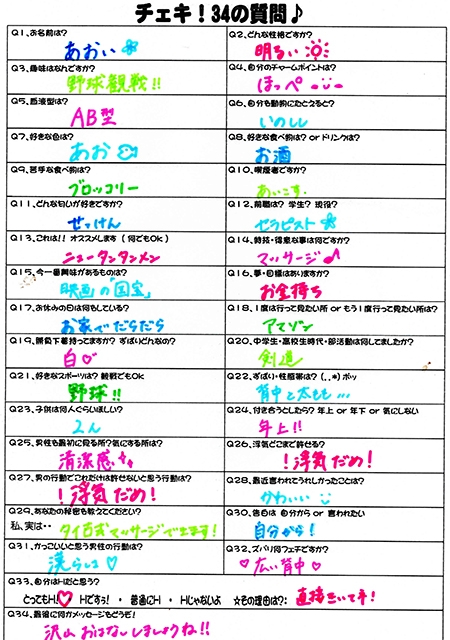 チェキ！34の質問♪
Q1、お名前は？
あおい
Q2、どんな性格ですか？
明るい
Q3、趣味はなんですか？
野球観戦!!
Q4、自分のチャームポイントは？
ほっぺ
Q5、血液型は？
AB型
Q6、自分を動物にたとえると？
いのしし
Q7、好きな色は？
あお
Q8、好きな食べ物は？ or ドリンクは？
お酒
Q9、苦手な食べ物は？
ブロッコリー
Q10、喫煙者ですか？
あいこす.
Q11、どんな匂いが好きですか？
せっけん
Q12、前職は？ 学生？ 現役？
セラピスト
Q13、これは!! オススメします （ 何でもOk ）
ニュータンタンメン
Q14、特技・得意な事は何ですか？
マッサージ♪
Q15、今一番興味があるものは？
映画の「国宝」
Q16、夢・目標はありますか？
お金持ち
Q17、お休みの日は何をしている？
お家でだらだら
Q18、1度は行って見たい所 or もう1度行って見たい所は？
アマゾン
Q19、勝負下着持ってますか？ ずばりどんなの？
白♡
Q20、中学生・高校生時代・部活動は何してましたか？
剣道
Q21、好きなスポーツは？ 観戦でもOK
野球!!
Q22、ずばり・性感帯は？（．．*）ポッ
背中と太もも...
Q23、子供は何人ぐらいほしい？
2人
Q24、付き合うとしたら？ 年上 or 年下 or 気にしない
年上!!
Q25、男性を最初に見る所？気にする所は？
清潔感
Q26、浮気どこまで許せる？
！浮気だめ！
Q27、男の行動でこれだけは許せないと思う行動は？
！浮気だめ！
Q28、最近言われてうれしかったことは？
かわいい
Q29、あなたの秘密を教えてください？
私、実は・・ タイ古式マッサージできます！
Q30、告白は 自分から or 言われたい
自分から！
Q31、かっこいいと思う男性の行動は？
漢らしさ♡
Q32、ズバリ何フェチですか？
♡広い背中♡
Q33、自分はHだと思う？
とってもH！♡ Hですぅ！ ・ 普通にH ・ Hじゃないよ ☆その理由は？： 直接きいて！
Q34、最後に何かメッセージをどうぞ！
沢山おはなししましょうね!!